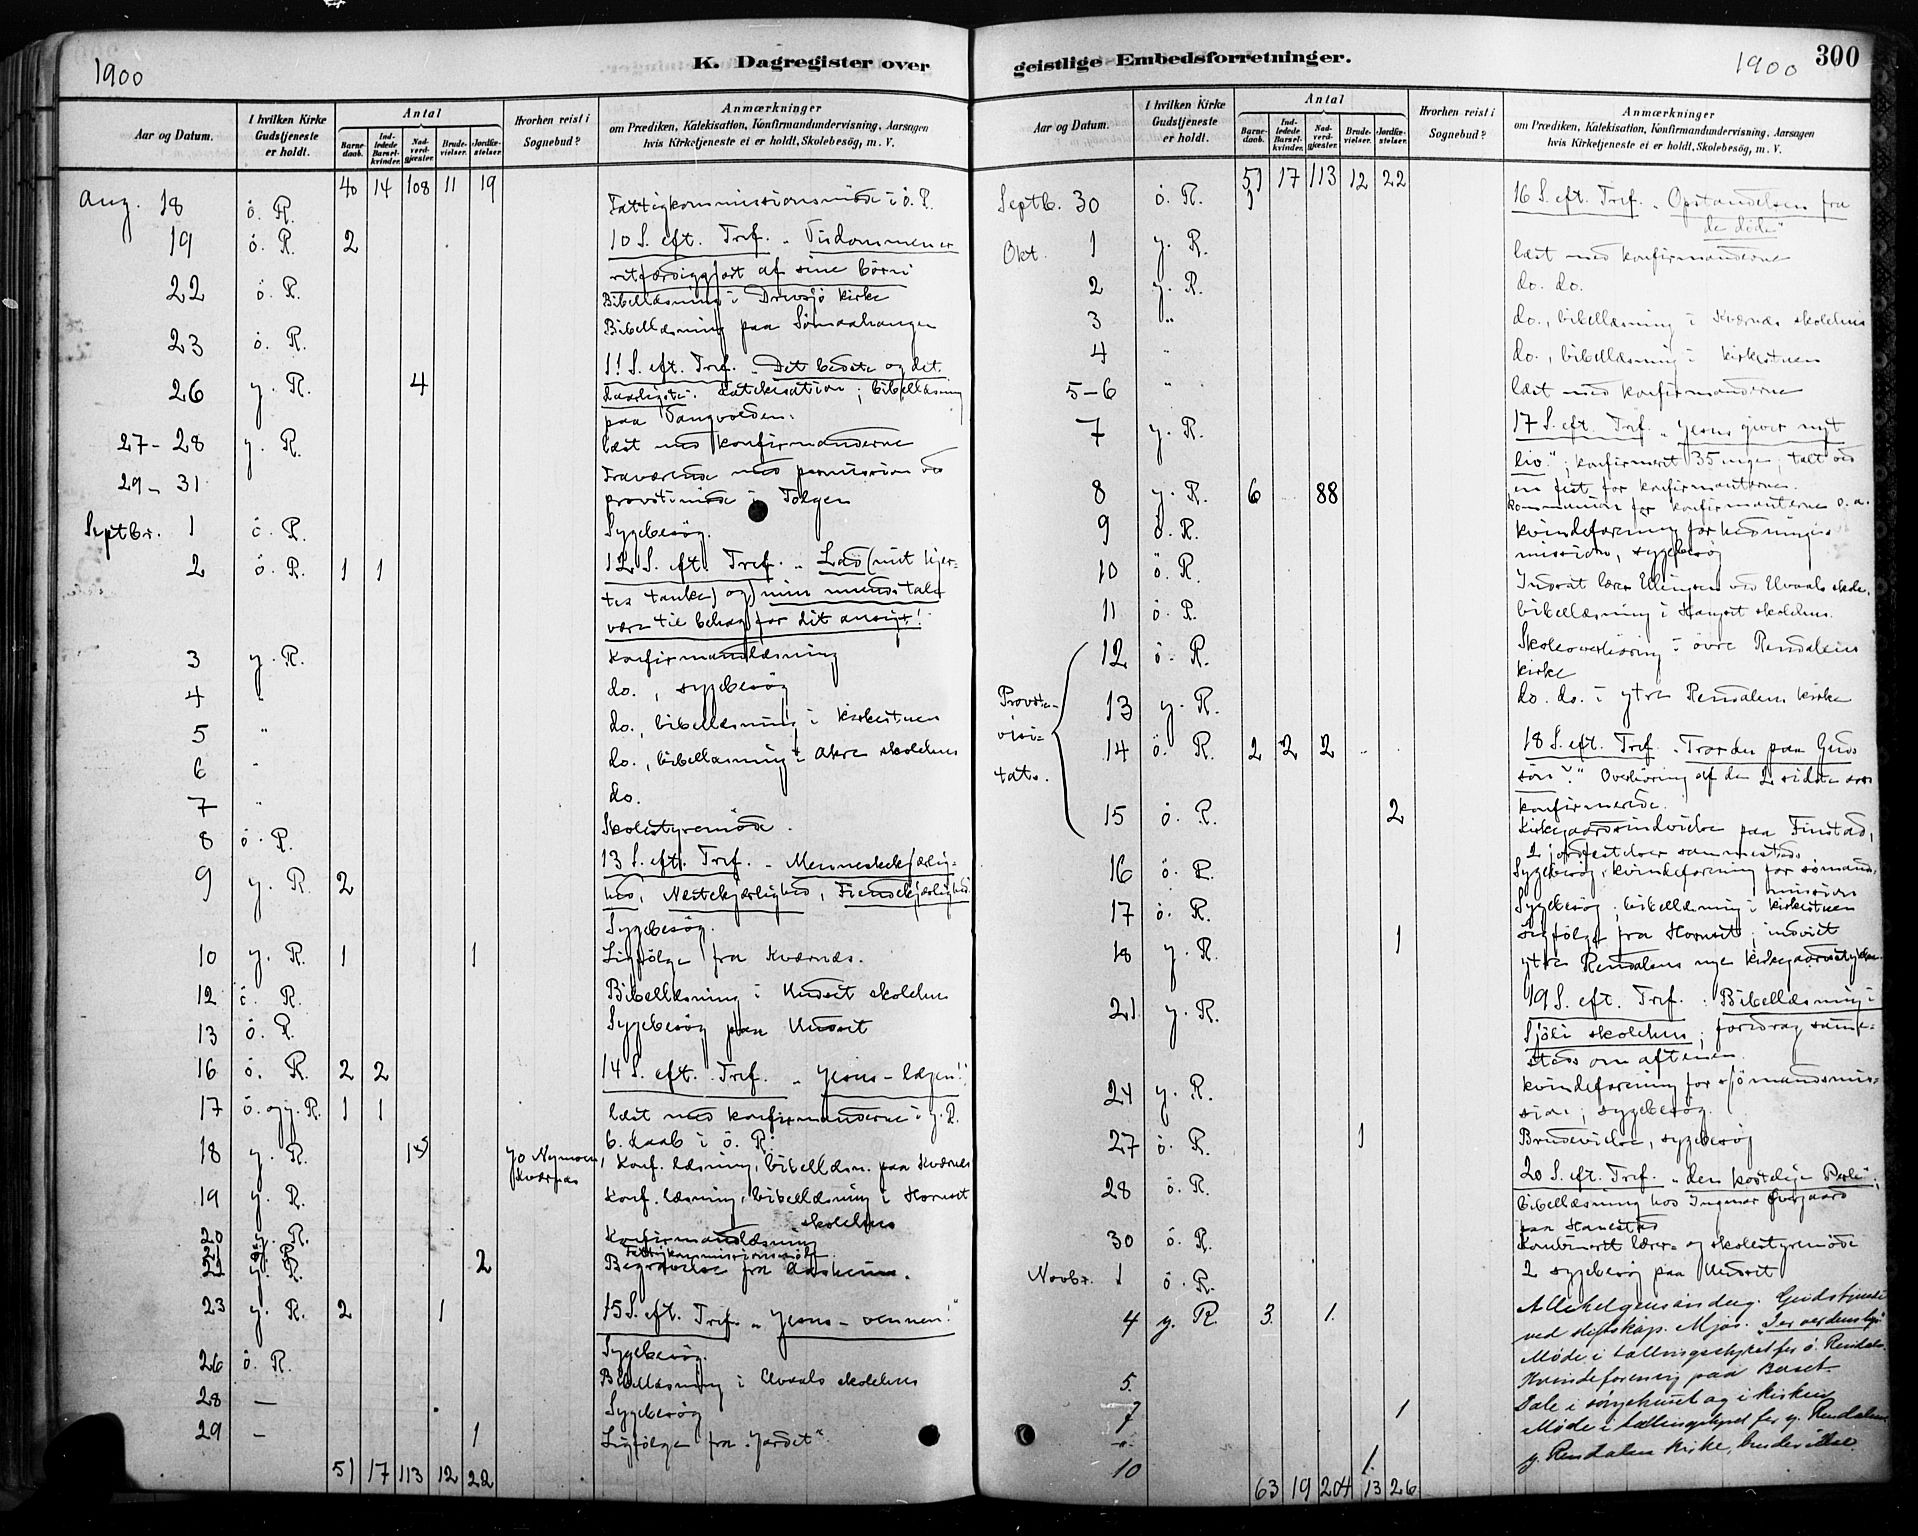 1900
K. Dagregister over
Aar og Datum.
I hvilken Kirke Gudstjeneste er holdt.
Antal
Barne-daab.
Ind-ledede Barsel-kvinder.
Nad-verd-gjæster.
Brude-vielser.
Jordfæ-stelser.
Hvorhen reist i Sognebud?
Anmærkninger
om Prædiken, Katekisation, Konfirmandundervisning, Aarsagen
hvis Kirketjeneste ei er holdt, Skolebesøg, m. V.
40 14 108 11 19
Aug. 18 ö. R. Fattigkommissionsmöde i ö. R.
19 ö. R. 2 10 S. eft. Tref. "Visdommen er
retfærdiggjort af sine børn"
22 ö. R. Bibellæsning i Drevsjö kirke
23 ö. R. Bibellæsning paa Sömaahaugen
26 y. R. 4 11 S. eft. Tref. "Det bedste og det
daarligste". Katekisation; bibellæsning
paa Vangvolden.
27-28 y. R. læst med konfirmanderne
29-31 Fraværende med permission ved
provstimöde i Tolgen
Septbr. 1 ö. R. Sygebesög.
2 ö. R. 1 1 12 S. eft. Tref. "Lad (mit hjer-
tes tanke) og) min munds tale
være til behag for dit ansigt!
3 y. R. Konfirmandlæsning
4 " do., sygebesög
5 " do., bibellæsning i kirkestuen
6 " do., bibellæsning i Akre skolehus
7 " do.
8 ö. R. Skolestyremöde.
9 y. R. 2 13 S. eft. Tref. "Menneskekjærlig-
hed, Næstekjærlighed, Fiendekjærlighed.
Sygebesög.
10 y. R. 1 1 Ligfölge fra Kværnæs.
12 ö. R. Bibellæsning i Undset skolehus
13 ö. R. Sygebesög paa Undset
16 ö. R. 2 2 14 S. eft. Tref. "Jesus - lægen!"
17 ö. og y. R. 1 1 læst med konfirmanderne i y. R.
b. daab i ö. R.
18 y. R. 1 Jo Nymoen, Kværnæs Konf. læsning, bibellæsn. paa Kværnæs
19 y. R. Konf. læsning, bibellæsning i Hornset
skolehus
20 y. R. Konfirmandlæsning
21 Fattigkommissionsmöde
22 y. R. 2 Begravelse fra Aasheim.
23 y. R. 2 1 15 S. eft. Tref. "Jesus - vennen!"
26 ö. R. Sygebesög.
28 — Bibellæsning i Elvaals skolehus
Sygebesög
29 — 1 Ligfölge fra "Jordet"
51 17 113 12 22
geistlige Embedsforretninger.
1900 300
Aar og Datum.
I hvilken Kirke Gudstjeneste er holdt.
Antal
Barne-daab.
Ind-ledede Barsel-kvinder.
Nad-verd-gjæster.
Brude-vielser.
Jordfæ-stelser.
Hvorhen reist i Sognebud?
Anmærkninger
om Prædiken, Katekisation, Konfirmandundervisning, Aarsagen
hvis Kirketjeneste ei er holdt, Skolebesög, m. V.
51 17 113 12 22
Septb. 30 ö. R. 16 S. eft. Tref. "Opstandelsen fra
de döde"
Okt. 1 y. R. læst med konfirmanderne
2 y. R. do. do.
3 " do., bibellæsning i Kværnæs skolehus
4 " do., bibellæsning i kirkestuen
5-6 " læst med konfirmanderne
7 y. R. 17 S. eft. Tref. "Jesus giver nyt
liv."; konfirmeret 35 unge; talt ved
en fest for konfirmanterne.
8 y. R. 6 88 kommunion for konfirmanterne o. a.
9 ö. R. kvindeforening for hednings-
mission, sygebesög
10 ö. R. Indsat lærer Ellingsen ved Elvaals skole,
11 ö. R. bibellæsning i Hangset skolehus.
Provste-
visi-
tats.
12 ö. R. Skoleoverhöring i övre Rendalens
kirke
13 y. R. do. do. i ytre Rendalens kirke
14 ö. R. 2 2 2 18 S. eft. Tref. "Tror du paa Guds
sön?" Overhöring af de 2 sidste aars
konfirmerede.
15 ö. R. 2 Kirkegaardsindvielse paa Finstad,
2 jordfæstelser sammesteds
16 ö. R. Sygebesög, kvindeforening for sömands-
mission
17 ö. R. Sygebesög, bibellæsning i kirkestuen
18 y. R. 1 Ligfölge fra Hornset; indviet
ytre Rendalens nye kirkegaardsstykke.
21 y. R. 19 S. eft. Tref. : Bibellæsning i
Sjöli skolehus; foredrag samme-
steds om aftenen.
24 y. R. kvindeforening for sjömandsmis-
sion, sygebesög.
27 ö. R. 1 Brudevielse, sygebesög
28 ö. R. 20 S. eft. Tref. "den kostelige Perle";
bibellæsning hos Ingmar Övergaard
paa Hanestad
30 ö. R. Kombineret lærer- og skolestyremöde
Novbr. 1 ö. R. 2 sygebesög paa Undset
4 y. R. 3. 1. Allehelgensöndag. Gudstjeneste
ved stiftskap. Mjös. "Jes. verdens lys"
Møde i tællingsstyret for ö. Rendalen.
5. Kvindeforening paa Berset
7 1 Tale i sørgehuset og i kirken
Møde i tællingsstyret for y. Rendalen.
10 1. y. Rendalen kirke, brudevielse.
63 19 204 13 26